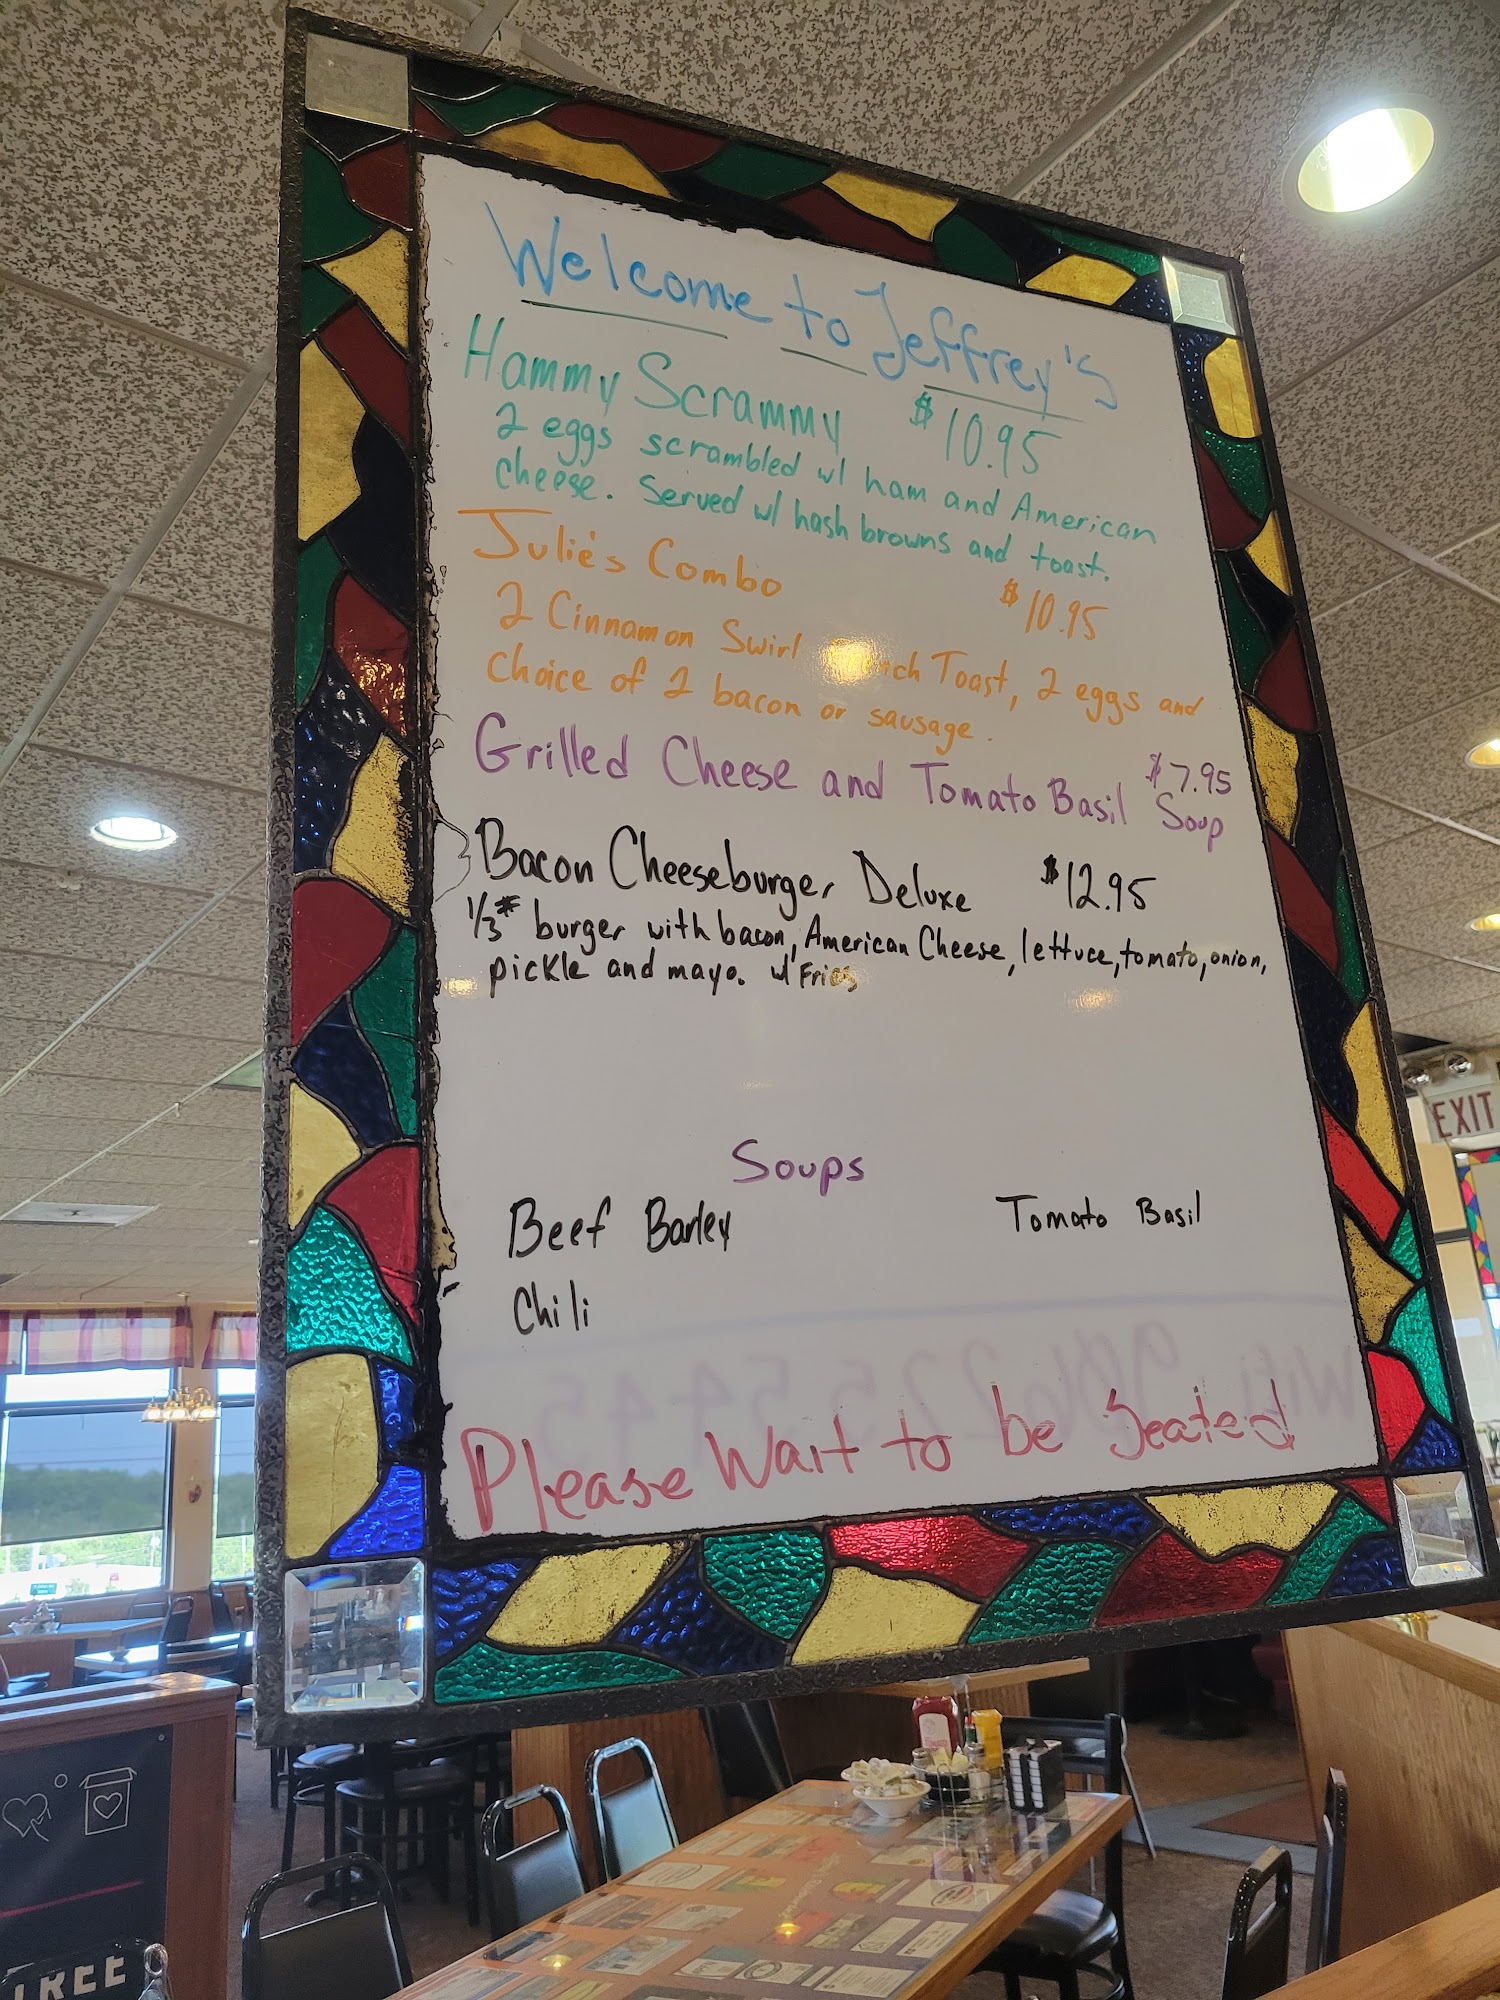 Welcome to Jeffrey's
Hammy Scrammy $10.95
2 eggs scrambled w/ ham and American
cheese. Served w/ hash browns and toast.
Julie's Combo $10.95
2 Cinnamon Swirl Toast, 2 eggs and
choice of 2 bacon or sausage.
Grilled Cheese and Tomato Basil Soup $7.95
Bacon Cheeseburger Deluxe $12.95
1/3# burger with bacon, American Cheese, lettuce, tomato, onion,
pickle and mayo. w/ Fries
Soups
Beef Barley Tomato Basil
Chili
Please Wait to be Seated
EXIT